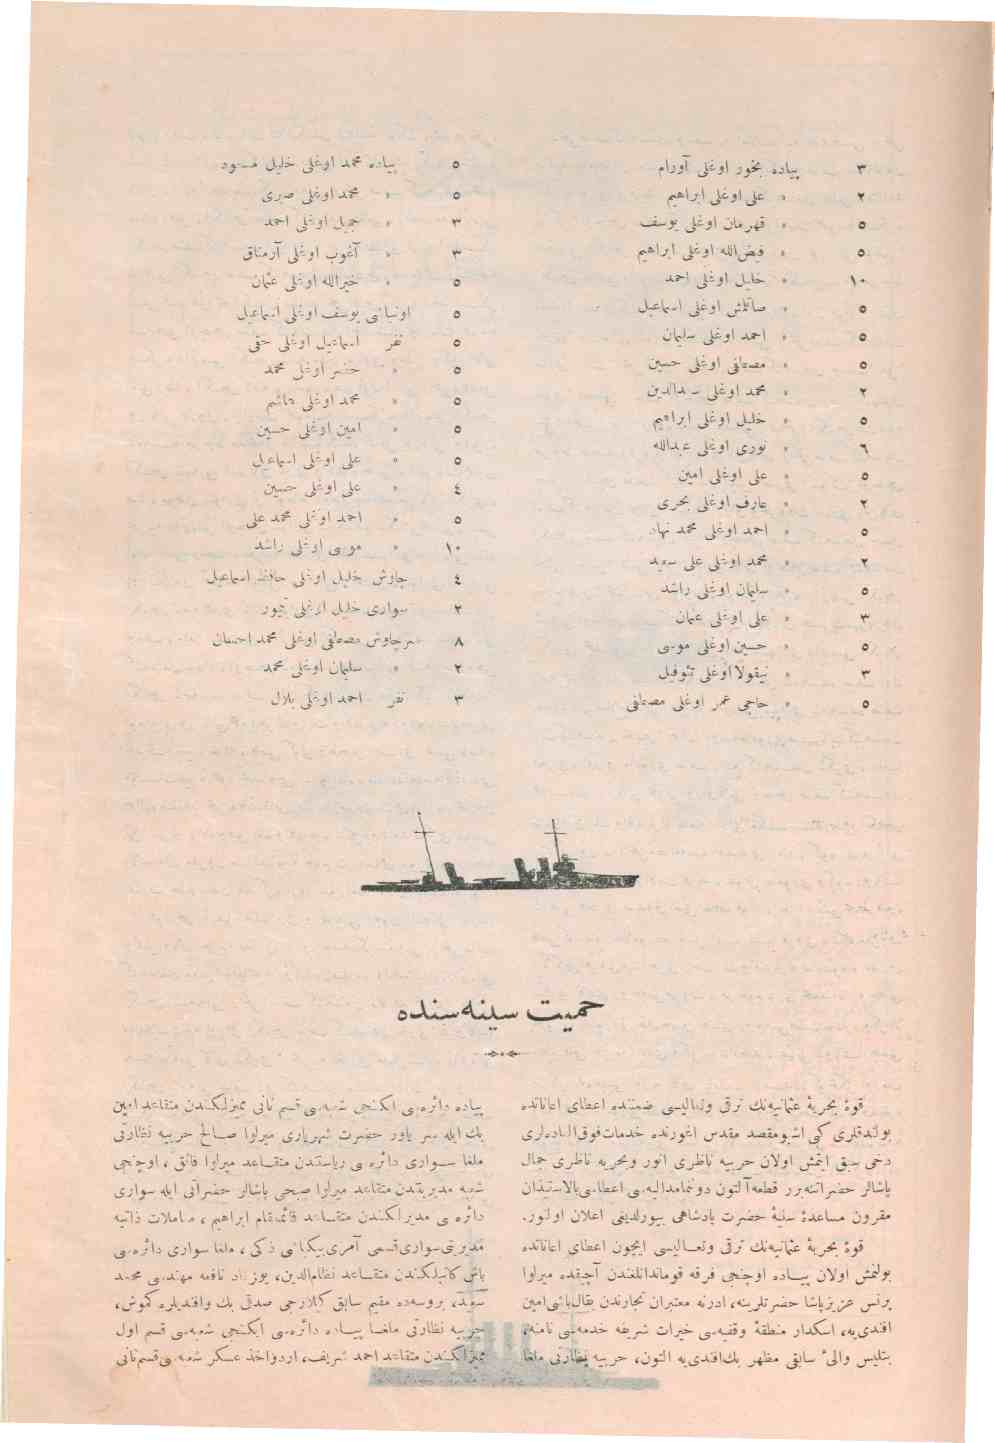 ٣ پیاده بخور اوغلی آورام
٢ » علی اوغلی ابراهیم
٥ » قهرمان اوغلی یوسف
٥ » فیض‌الله اوغلی ابراهیم
١٠ » خلیل اوغلی احمد
٥ » صاتلمش اوغلی اسماعیل
٥ » احمد اوغلی سلیمان
٥ » مصطفی اوغلی حسین
٢ » محمد اوغلی سعدالدین
٥ » خلیل اوغلی ابراهیم
٦ » نوری اوغلی عبدالله
٥ » علی اوغلی امین
٢ » عارف اوغلی بحری
٥ » احمد اوغلی محمد نهاد
٢ » محمد اوغلی علی سعید
٥ » سلیمان اوغلی راشد
٣ » علی اوغلی عثمان
٥ » حسین اوغلی موسی
٣ » نیقولا اوغلی تئوفیل
٥ » حاجی عمر اوغلی مصطفی
٥ پیاده محمد اوغلی خلیل مسعود
٥ » محمد اوغلی صبری
٣ » جمیل اوغلی احمد
٣ » آغوب اوغلی آرمناق
٥ » خیرالله اوغلی عثمان
٥ اونباشی یوسف اوغلی اسماعیل
٥ نفر اسماعیل اوغلی حقی
٥ » خضر اوغلی محمد
٥ » محمد اوغلی هاشم
٥ » امین اوغلی حسین
٥ » علی اوغلی اسماعیل
٤ » علی اوغلی حسین
٥ » احمد اوغلی محمد علی
١٠ » موسی اوغلی راشد
٤ چاوش خلیل اوغلی حافظ اسماعیل
٢ سواری خلیل اوغلی تیمور
٨ سرچاوش مصطفی اوغلی محمد احسان
٢ » سلیمان اوغلی محمد
٣ نفر احمد اوغلی بلال
حمیت سینه‌سنده
قوهٔ بحریهٔ عثمانیه‌نك ترقی وتعالیسی ضمننده اعطای اعاناتده
بولندقلری كبی اشبو مقصد مقدس اغورنده خدمات فوق‌العاده‌لری
دخی سبق ایتمش اولان حربیه ناظری انور وبحریه ناظری جمال
پاشالر حضراتنه برر قطعه آلتون دوننما مدالیه‌سی اعطاسی بالاستیذان
مقرون مساعدهٔ سنیهٔ حضرت پادشاهی بیورلدیغی اعلان اولنور.
قوهٔ بحریهٔ عثمانیه‌نك ترقی وتعالیسی ایچون اعطای اعاناتده
بولنمش اولان پیاده اوچنجی فرقه قوماندانلغندن آچیقده میرلوا
پرنس عزیز پاشا حضرتلرینه، ادرنه معتبران تجارندن بقال باشی امین
افندی‌یه، اسكدار منطقهٔ وقفیه‌سی خیرات شریفه خدمه‌سی نامنه،
بتلیس والیٔ سابقی مظهر بك افندی‌یه التون، حربیه نظارتی ملغا
پیاده دائره‌سی ایكنجی شعبه‌سی قسم ثانی ممیزلكندن متقاعد امین
بك ایله سر یاور حضرت شهریاری میرلوا صالح حربیه نظارتی
ملغا سواری دائره‌سی ریاستندن متقاعد میرلوا فائق، اوچنجی
شعبه مدیریتدن متقاعد میرلوا صبحی پاشالر حضراتی ایله سواری
دائره‌سی مدیرلكندن متقاعد قائمقام ابراهیم، معاملات ذاتیه
مدیریتی سواری قسمی آمری بیكباشی ذكی، ملغا سواری دائره‌سی
باش كاتبلكندن متقاعد نظام‌الدین، یوزغاد نافعه مهندسی محمد
سعید، بروسه‌ده مقیم سابق كیلارجی صدقی بك وافندیلره كموش،
حربیه نظارتی ملغا پیاده دائره‌سی ایكنجی شعبه‌سی قسم اول
ممیزلكندن متقاعد احمد شریف، اردو اخذ عسكر شعبه‌سی قسم ثانی